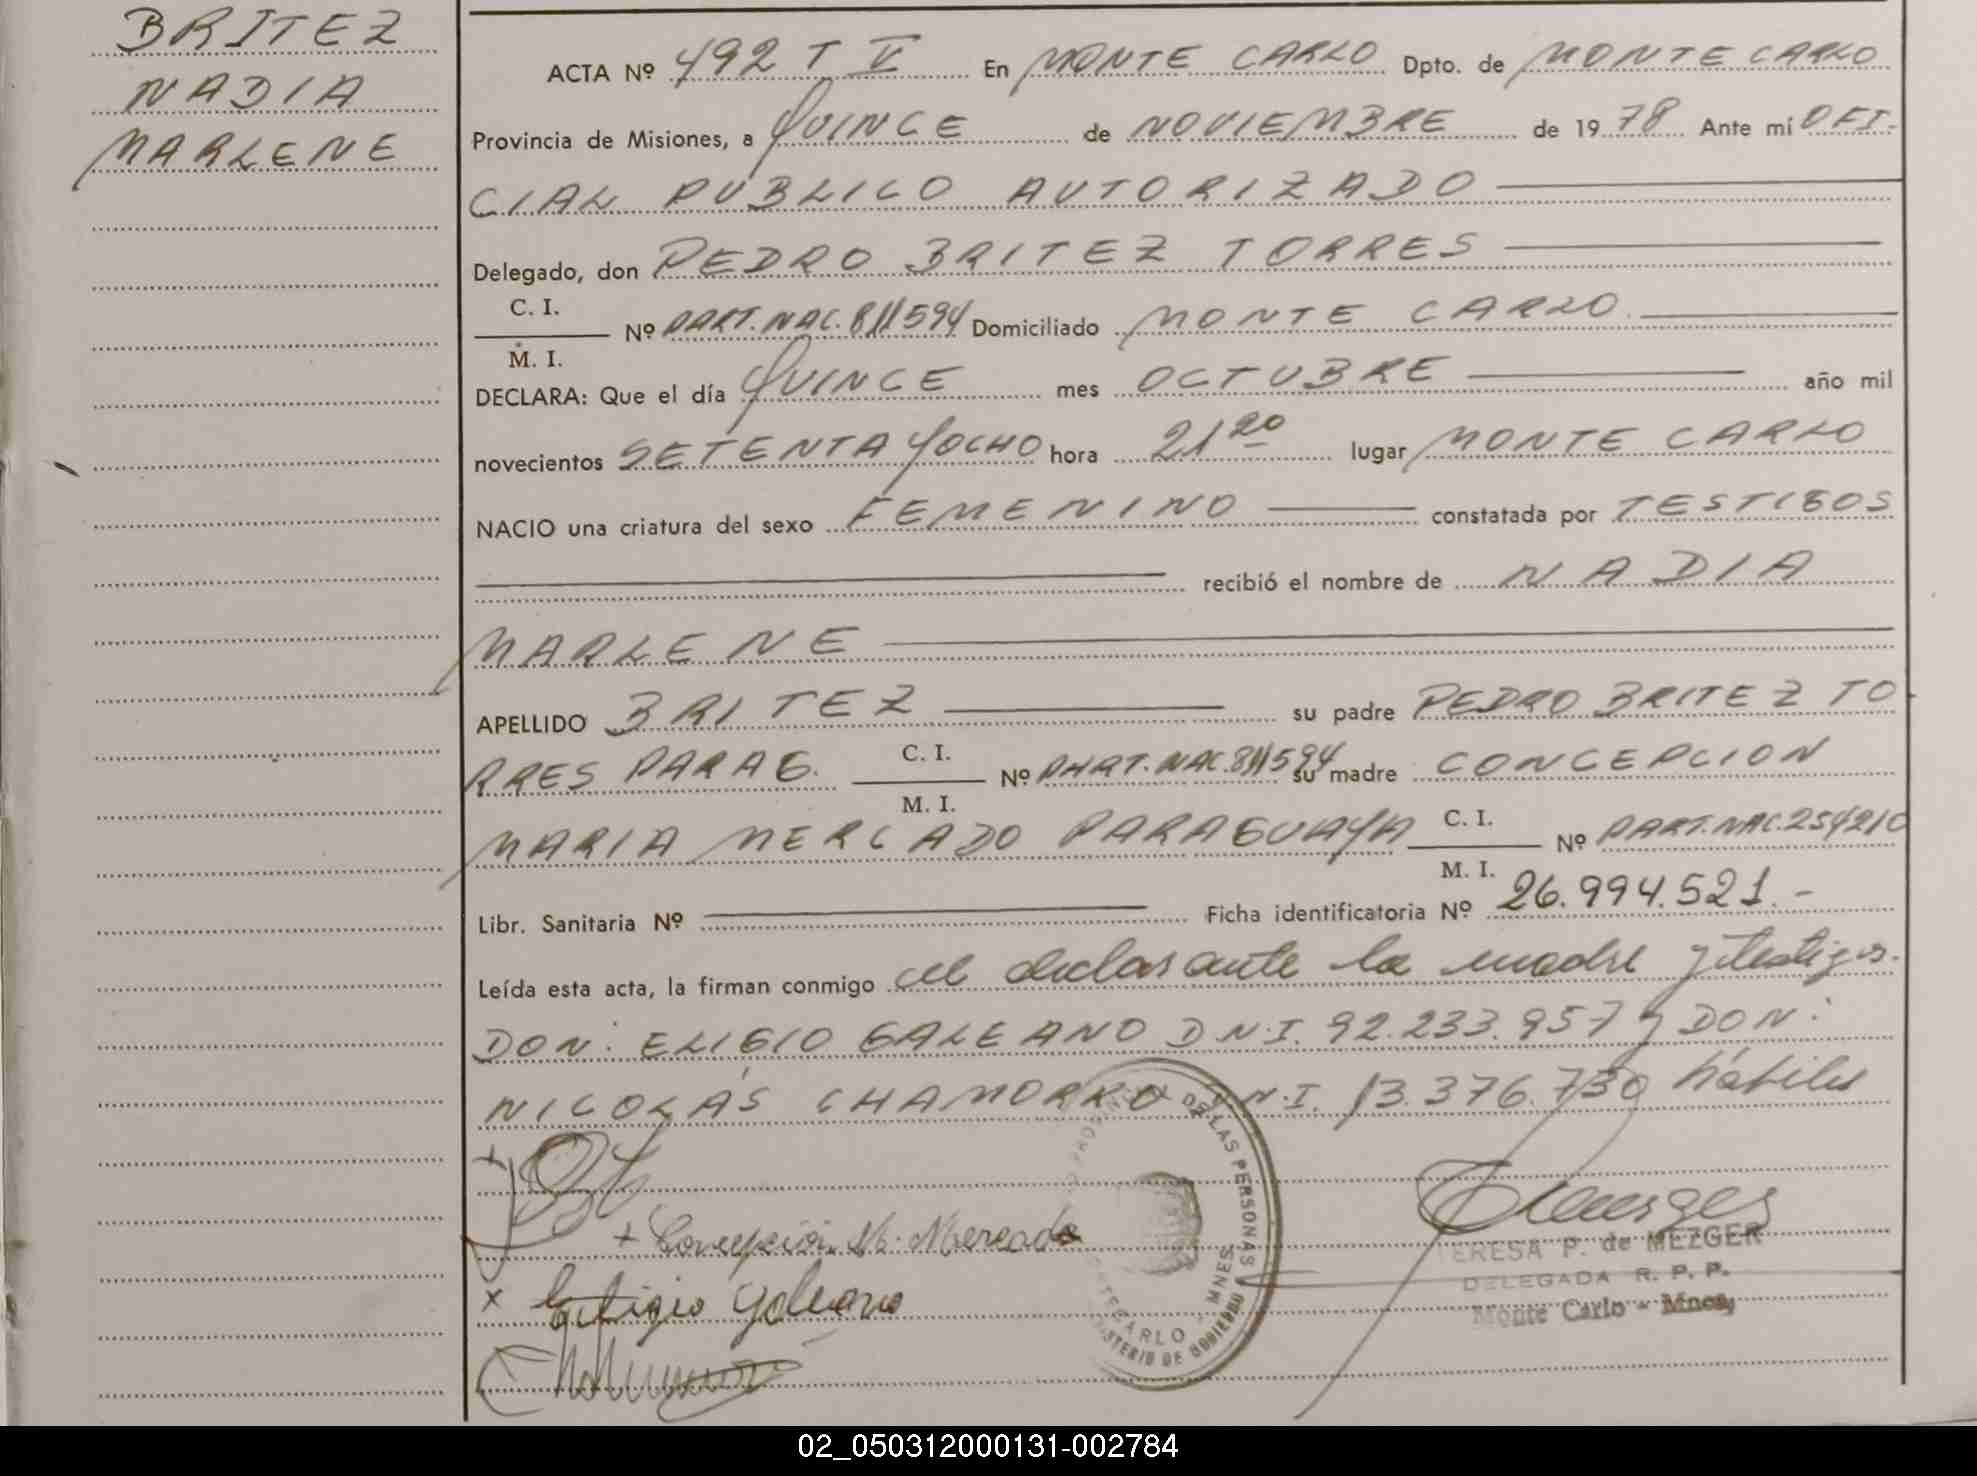 BRITEZ
NADIA
MARLENE
ACTA Nº 492 T V En MONTE CARLO Dpto. de MONTE CARLO
Provincia de Misiones, a QUINCE de NOVIEMBRE de 1978 Ante mí OFI-
CIAL PUBLICO AUTORIZADO
Delegado, don PEDRO BRITEZ TORRES
C. I.
M. I.
Nº PART. NAC. 811594 Domiciliado MONTE CARLO
DECLARA: Que el día QUINCE mes OCTUBRE año mil
novecientos SETENTA YOCHO hora 21 20 lugar MONTE CARLO
NACIO una criatura del sexo FEMENINO constatada por TESTIGOS
recibió el nombre de NADIA
MARLENE
APELLIDO BRITEZ su padre PEDRO BRITEZ TO
RRES PARAG. C. I. M. I. Nº PART. NAC. 811594 su madre CONCEPCION
MARIA MERCADO PARAGUAYA C. I. M. I. Nº PART. NAC. 254210
Libr. Sanitaria Nº Ficha identificatoria Nº 26.994.521.-
Leída esta acta, la firman conmigo el declarante la madre y testigos.
DON: ELIGIO GALEANO D.N.I. 92.233.957 y DON:
NICOLÁS CHAMORRO D.N.I. 13.376.730 hábiles
+ Concepción M. Mercado
x Eligio Galeano
DE LAS PERSONAS
MNES.
MINISTERIO DE GOBIERNO
MONTECARLO
TERESA P. de MEZGER
DELEGADA R. P. P.
Monte Carlo - Mnes,
02_050312000131-002784